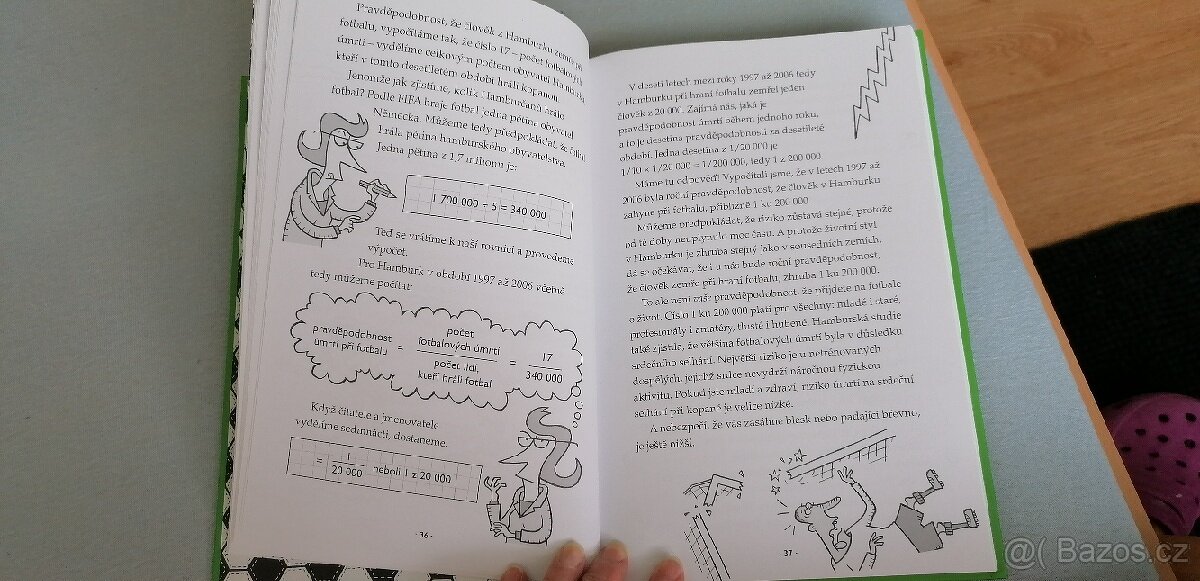 Pravděpodobnost, že člověk z Hamburku zemře při
fotbalu, vypočítáme tak, že číslo 17 – počet fotbalových
úmrtí – vydělíme celkovým počtem obyvatel Hamburku,
kteří v tomto desetiletém období hráli kopanou.
Jenomže jak zjistíme, kolik Hamburčanů hrálo
fotbal? Podle FIFA hraje fotbal jedna pětina obyvatel
Německa. Můžeme tedy předpokládat, že fotbal
hrála pětina hamburského obyvatelstva.
Jedna pětina z 1,7 milionu je:
1 700 000 ÷ 5 = 340 000
Teď se vrátíme k naší rovnici a provedeme
výpočet.
Pro Hamburk v období 1997 až 2006 včetně
tedy můžeme počítat:
pravděpodobnost
úmrtí při fotbalu
=
počet
fotbalových úmrtí
počet lidí,
kteří hráli fotbal
=
17
340 000
Když čitatele a jmenovatele
vydělíme sedmnácti, dostaneme:
= 1
20 000 neboli 1 z 20 000
- 36 -
V deseti letech mezi roky 1997 až 2006 tedy
v Hamburku při hraní fotbalu zemřel jeden
člověk z 20 000. Zajímá nás, jaká je
pravděpodobnost úmrtí během jednoho roku,
a to je desetina pravděpodobnosti za desetileté
období. Jedna desetina z 1/20 000 je
1/10 × 1/20 000 = 1/200 000, tedy 1 z 200 000
Máme tu odpověď! Vypočítali jsme, že v letech 1997 až
2006 byla roční pravděpodobnost, že člověk v Hamburku
zahyne při fotbalu, přibližně 1 ku 200 000
Můžeme předpokládat, že riziko zůstává stejné, protože
od té doby neuplynulo moc času. A protože životní styl
v Hamburku je zhruba stejný jako v sousedních zemích,
dá se očekávat, že i u nás bude roční pravděpodobnost,
že člověk zemře při hraní fotbalu, zhruba 1 ku 200 000.
To ale není vaše pravděpodobnost, že přijdete na fotbale
o život. Číslo 1 ku 200 000 platí pro všechny: mladé i staré,
profesionály i amatéry, tlusté i hubené. Hamburská studie
také zjistila, že většina fotbalových úmrtí byla v důsledku
srdečního selhání. Největší riziko je u netrénovaných
dospělých, jejichž srdce nevydrží náročnou fyzickou
aktivitu. Pokud jste mladí a zdraví, riziko úmrtí na srdeční
selhání při kopané je velice nízké.
A nebezpečí, že vás zasáhne blesk nebo padající břevno,
je ještě nižší.
37 -
@( Bazos.cz